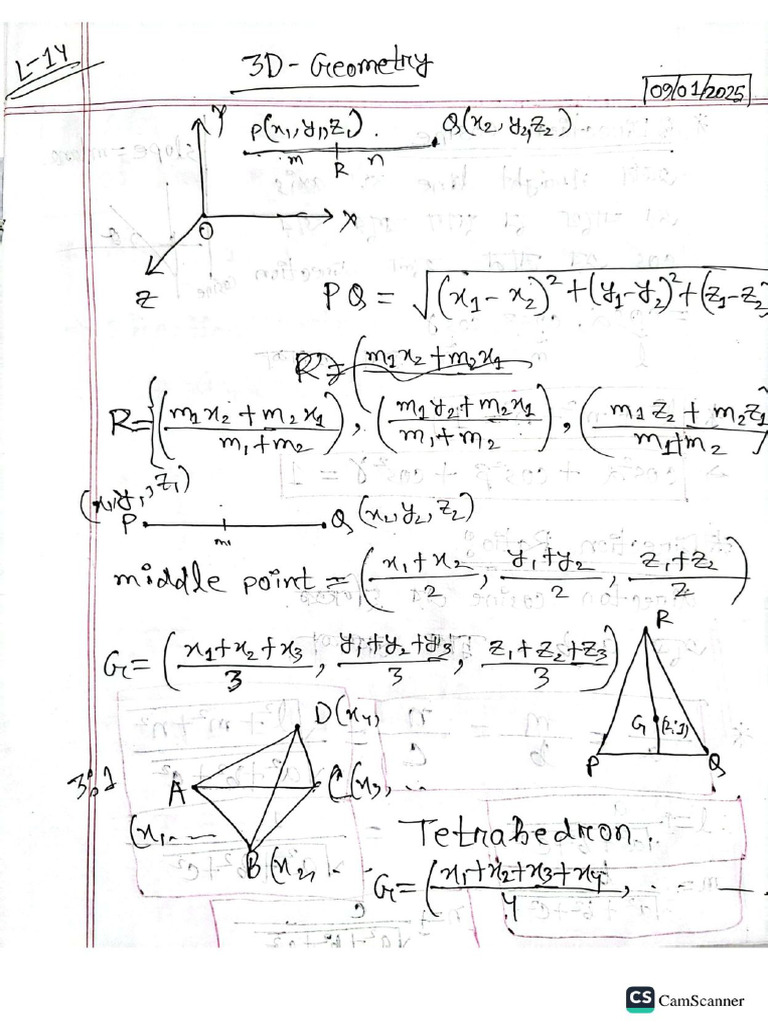 L-14
3D-Geometry
09/01/2025
Y
P(x₁,y₁,z₁) . Q(x₂,y₂,z₂)
m R n
O X
Z
PQ = √(x₁-x₂)²+(y₁-y₂)²+(z₁-z₂
R = (m₁x₂+m₂x₁
R={(m₁x₂+m₂x₁/m₁+m₂), (m₁y₂+m₂x₁/m₁+m₂), (m₁z₂+m₂z₁/m₁+m₂
(x₁,y₁,z₁)
P Q(x₂,y₂,z₂)
m₁
middle point = (x₁+x₂/2, y₁+y₂/2, z₁+z₂/2)
R
G=(x₁+x₂+x₃/3, y₁+y₂+y₃/3, z₁+z₂+z₃/3)
G (2:1)
P Q
D(x₄,
3:1 A C(x₃, ..
(x₁...
B(x₂, . .
Tetrahedron.
G=(x₁+x₂+x₃+x₄/4, . — .
CS CamScanner